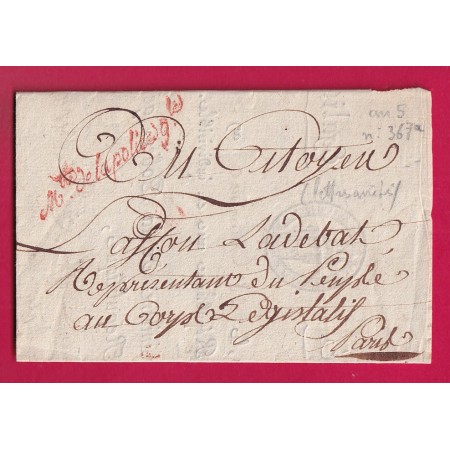 Mtre de la police gle
an 5
n: 367a
Au Citoyen
Laffon Ladebat,
Representant du Peuple
au Corps Legislatif
Paris